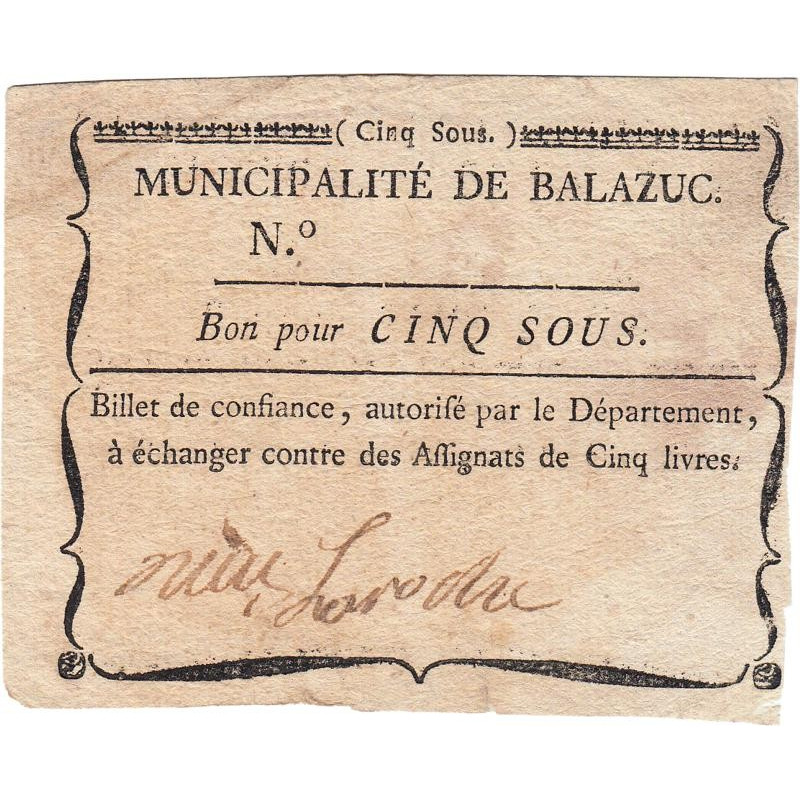 ( Cinq Sous. )
MUNICIPALITÉ DE BALAZUC.
N.º
Bon pour CINQ SOUS.
Billet de confiance, autoriſé par le Département,
à échanger contre des Aſſignats de Cinq livres.